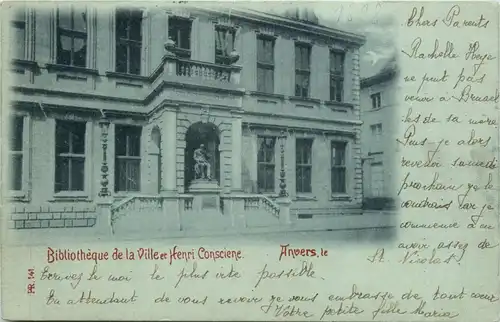 Chers Parents
Rachelle Heye
ne peut pas
venir à Bruxel
les de sa mère
Puis-je alors
revenir samedi
prochain car je
voudrais car je
commence à en
avoir assez de
St. Nicolas.
Bibliothèque de la Ville et Henri Consciene. Anvers, le
PR. 141
Ecrivez le moi le plus vite possible.
En attendant de vous revoir je vous embrasse de tout cœur
Votre petite fille Maria